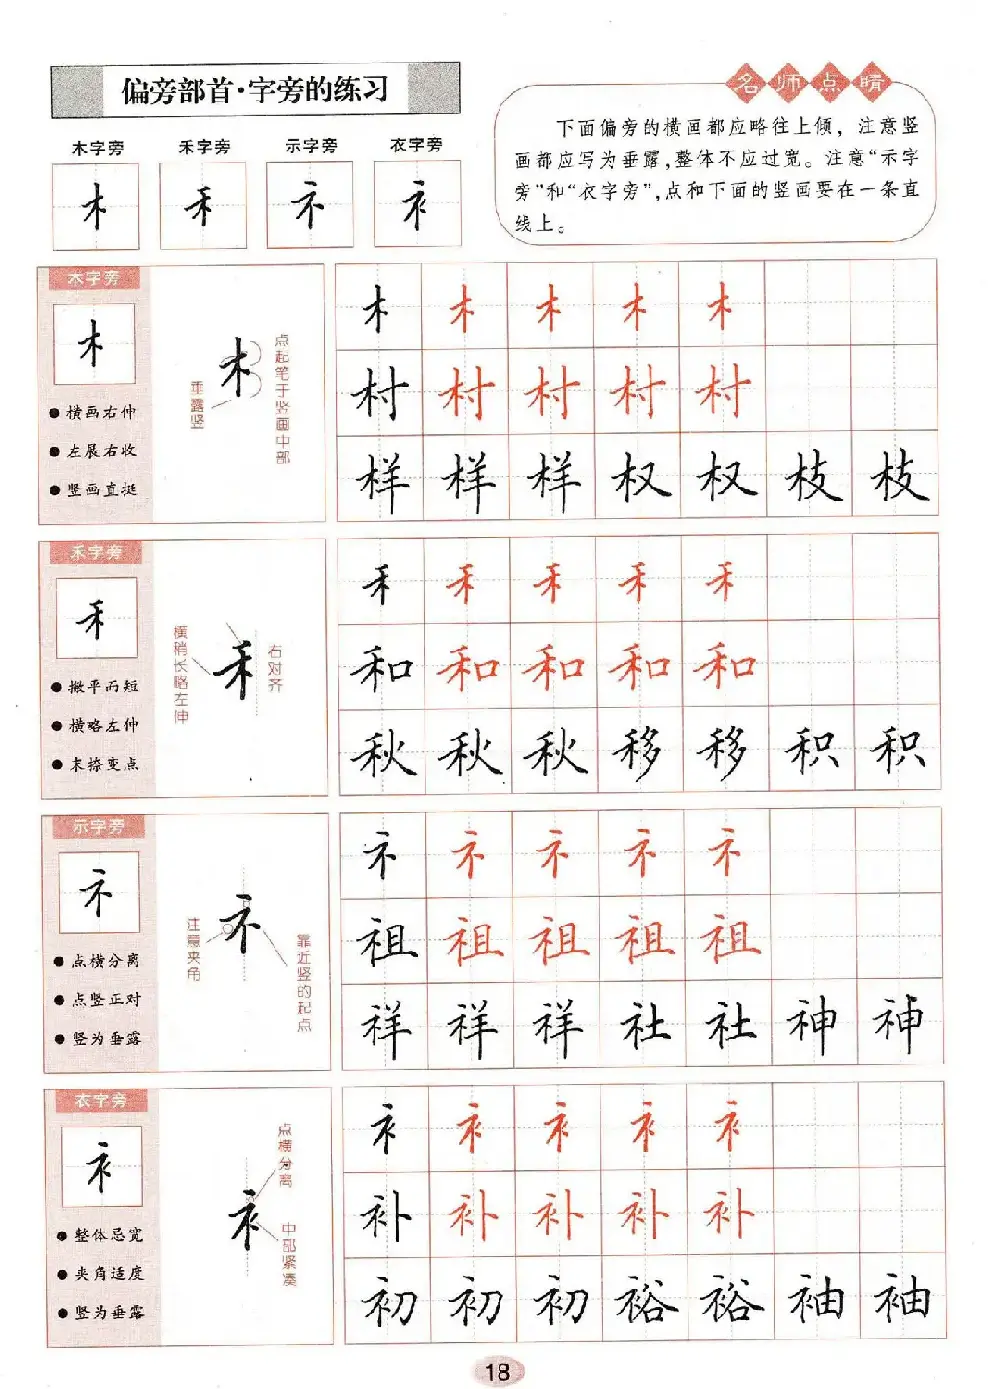 偏旁部首·字旁的练习
名师点睛
下面偏旁的横画都应略往上倾，注意竖
画都应写为垂露,整体不应过宽。注意“示字
旁”和“衣字旁”,点和下面的竖画要在一条直
线上。
木字旁 禾字旁 示字旁 衣字旁
木 禾 礻 衤
木字旁
木
横画右伸
左展右收
竖画直挺
垂露竖
木
点起笔于竖画中部
木 木 木 木 木
村 村 村 村 村
样 样 样 权 权 枝 枝
禾字旁
禾
撇平而短
横略左伸
末捺变点
横稍长略左伸
禾
右对齐
禾 禾 禾 禾 禾
和 和 和 和 和
秋 秋 秋 移 移 积 积
示字旁
礻
点横分离
点竖正对
竖为垂露
注意夹角
礻
靠近竖的起点
礻 礻 礻 礻 礻
祖 祖 祖 祖 祖
祥 祥 祥 社 社 神 神
衣字旁
衤
整体忌宽
夹角适度
竖为垂露
点横分离
衤
中部紧凑
衤 衤 衤 衤 衤
补 补 补 补 补
初 初 初 裕 裕 袖 袖
18